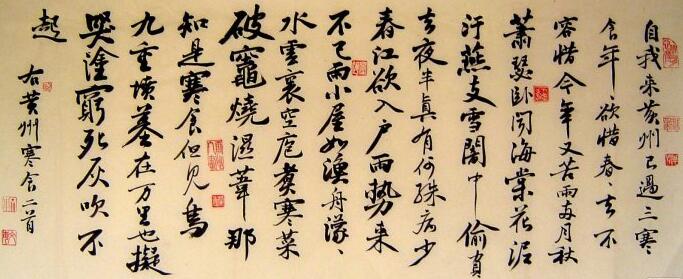 自我来黄州已過三寒
食年〻欲惜春〻去不
容惜今年又苦雨兩月秋
蕭瑟卧闻海棠花泥
汙燕支雪闇中偷負
去夜半真有何殊病少
春江欲入户雨勢来
不已雨小屋如漁舟濛〻
水雲裏空庖煑寒菜
破竈燒濕葦那
知是寒食但見烏
九重墳墓在万里也擬
哭塗窮死灰吹不
起
右黄州寒食二首